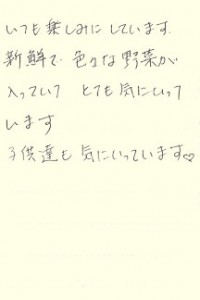 いつも楽しみにしています.
新鮮で 色々な野菜が
入っていて とても気にいって
います
子供達も 気にいっています♡